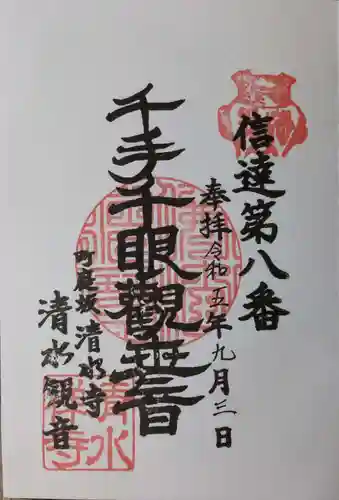 信達第八番
奉拝令和五年九月三日
千手千眼觀世音
阿慶坂清水寺
清水観音
清水
寺